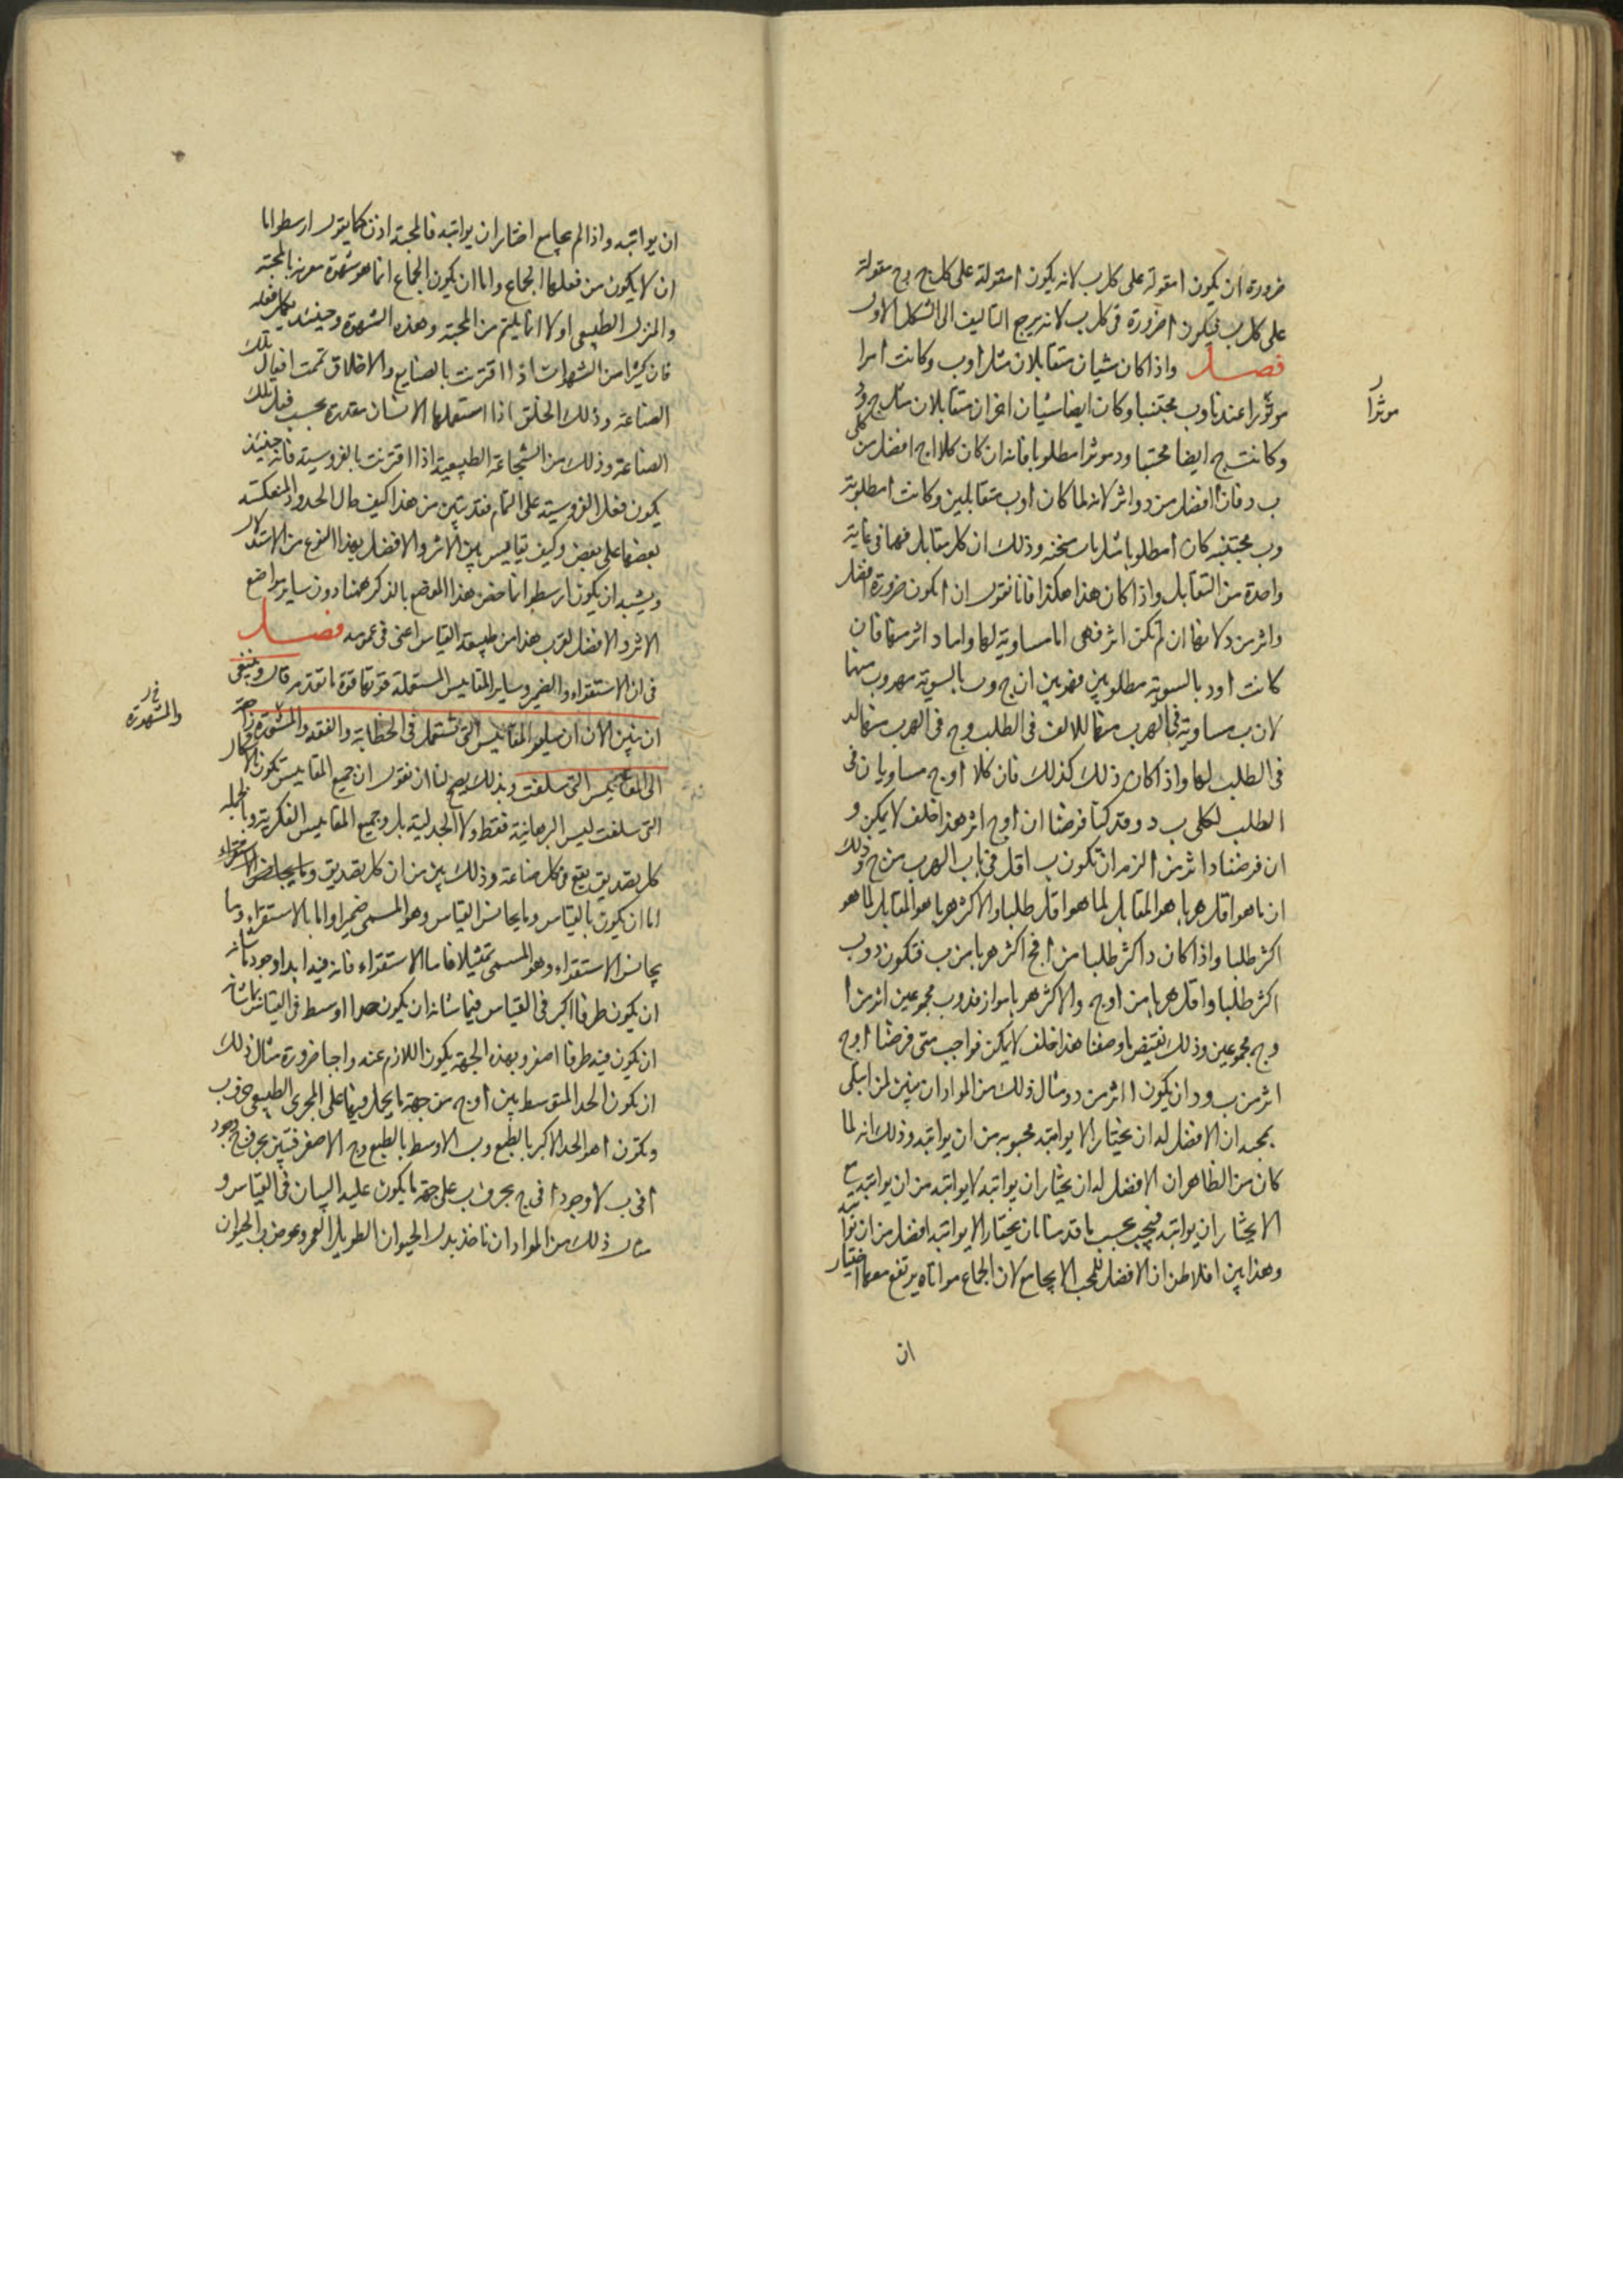 ضرورة ان يكون ا مقولة على كل ب لانه يكون ا مقولة على كل ج وج مقولة
على كل ب فيكون ا ضرورة فى كل ب لانه يرجع التاليف الى الشكل الاول
فصل واذا كان شيان متقابلان مثل ا وب وكانت ا مرا
موثرا عندنا وب مجتنبا وكان ايضا شيان اخران متقابلان مثل ج ود
موثرا
وكانت ج ايضا مجتنبا ود موثرا مطلوبا فانه ان كان كلا ا ج افضل من كلى
ب د فان ا افضل من د واثر لانه لما كان ا وب متقابلين وكانت ا مطلوبة
وب مجتنبه كان ا مطلوبا مثل ما ب مجتنبه وذلك ان كل متقابل فهما فى غاية
واحدة من التقابل واذا كان هذا هكذا فانا نقول ان ا تكون ضرورة افضل
واثر من د لانها ان لم تكن اثر فهى اما مساوية لها واما د اثر منها فان
كانت ا ود بالسوية مطلوبين فهو بين ان ج وب بالسوية مهروب منهما
لان ب مساوية فى الهرب منها للالف فى الطلب وج فى الهرب منها لد
فى الطلب لها واذا كان ذلك كذلك فان كلا ا وج مساويان فى
الطلب لكلى ب د وقد كنا فرضنا ان ا وج اثر هذا خلف لا يمكن و
ان فرضنا د اثر من ا لزم ان تكون ب اقل فى باب الهرب من ج وذلك
ان ما هو اقل هربا هو المقابل لما هو اقل طلبا والاكثر هربا هو المقابل لما هو
اكثر طلبا واذا كان د اكثر طلبا من ا فج اكثر هربا من ب فتكون د وب
اكثر طلبا واقل هربا من ا وج والاكثر هربا مواز فد وب مجموعين اثر من ا
وج مجموعين وذلك نقيض ما وصفنا هذا خلف لا يمكن فواجب متى فرضنا ا وج
اثر من ب ود ان يكون ا اثر من د ومثال ذلك من المواد ان نبين لمن ابتلى
بمحبه ان الافضل له ان يختار الا يواتيه محبوبه من ان يواتيه وذلك انه لما
كان من الظاهر ان الافضل له ان يختار ان يواتيه لا يواتيه من ان يواتيه مع
الا يختار ان يواتيه فيجب بحسب ما قدمنا ان يختار الا يواتيه افضل من ان يواتيه
وهذا بين افلاطن ان الافضل للمحب الا يجامع لان الجماع مواتاه يرتفع معها اختيار
ان
ان يواتيه واذا لم يجامع اختار ان يواتيه فالمحبة اذن كما يقول ارسطو اما
ان لا يكون من فعلها الجماع واما ان يكون الجماع انما هو شهوة مقرنه بالمحبة
والمنزل الطبيعى اولا انما يلتيم من المحبة وهذه الشهوة وحينئذ يكمل فعله
فان كثيرا من الشهوات اذا اقترنت بالصنايع والاخلاق تممت افعال تلك
الصناعة وذلك الخلق اذا استعملها الانسان مقدرة بحسب فعل تلك
الصناعة وذلك من الشجاعة الطبيعية اذا اقترنت بالفروسية فانه حينئذ
يكون فعل الفروسية على التمام فقد تبين من هذا كيف حال الحدود المنعكسة
بعضها على بعض وكيف تقاييس بين الاثر والافضل بهذا النوع من الاستدلال
ويشبه ان يكون ارسطو انما خص هذا الموضع بالذكر ههنا دون ساير مواضع
الاثر والافضل لقرب هذا من طبيعة القياس اعنى فى عمومه فصل
فى ان الاستقراء والضمير وساير المقاييس المستعملة قوتها قوة ما تقدم قال وينبغى
ان نبين الان ان ساير المقاييس التى تستعمل فى الخطابة والفقه والمشورة راجعة
والشهوة
الى المقاييس التى سلفت وبذلك يصح لنا ان نقول ان جميع المقاييس تكون بالاشكال
التى سلفت ليس البرهانية فقط ولا الجدلية بل وجميع المقاييس الفكرية وبالجمله
كل تصديق يقع فى كل صناعة وذلك بين من ان كل تصديق وما يجانس الاستقراء
اما ان يكون بالقياس وما يجانس القياس وهو المسمى ضميرا واما بالاستقراء وما
يجانس الاستقراء وهو المسمى تمثيلا فاما الاستقراء فانه فيه ابدا وجود ما شانه
ان يكون طرفا اكبر فى القياس فيما شانه ان يكون حدا اوسط فى القياس بما شانه
ان يكون فيه طرفا اصغر وبهذه الجهة يكون اللازم عنه واجبا ضرورة مثال ذلك
ان يكون الحد المتوسط بين ا وج من جهة ما يحل فيها على المجرى الطبيعى حرف ب
وتكون ا هو الحد الاكبر بالطبع وب الاوسط بالطبع وج الاصغر فتبين بحرف ج وجود
ا فى ب لا وجود ا فى ج بحرف ب على جهة ما يكون عليه البيان فى القياس و
مثال ذلك من المواد ان ناخذ بدل الحيوان الطويل العمر وعوض ب الحيوان